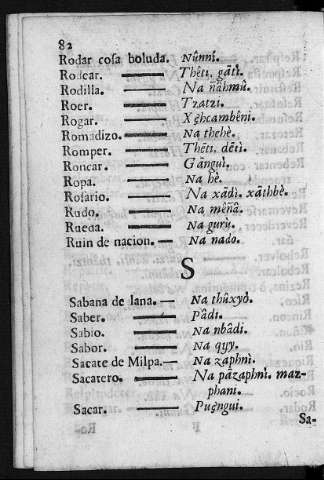 82
Rodar cosa boluda. Nûnni.
Rodear. Thêti, gãtì.
Rodilla. Na ñãhmû.
Roer. Tzatzi.
Rogar. Xẽhcambẽni.
Romadizo. Na thehè.
Romper. Thêti. dẽtì.
Roncar. Gãngui.
Ropa. Na hẽ.
Rosario. Na xãdi. xãthbè.
Rudo. Na mẽñã.
Rueda. Na gurù.
Ruin de nacion. Na nado.
S
Sabana de lana. Na thûxyò.
Saber. Pâdi.
Sabio. Na nbâdi.
Sabor. Na qyy.
Sacate de Milpa. Na zaphnì.
Sacatero. Na pãzaphnì. maz-
phani.
Sacar. Puẽngui.
Sa-